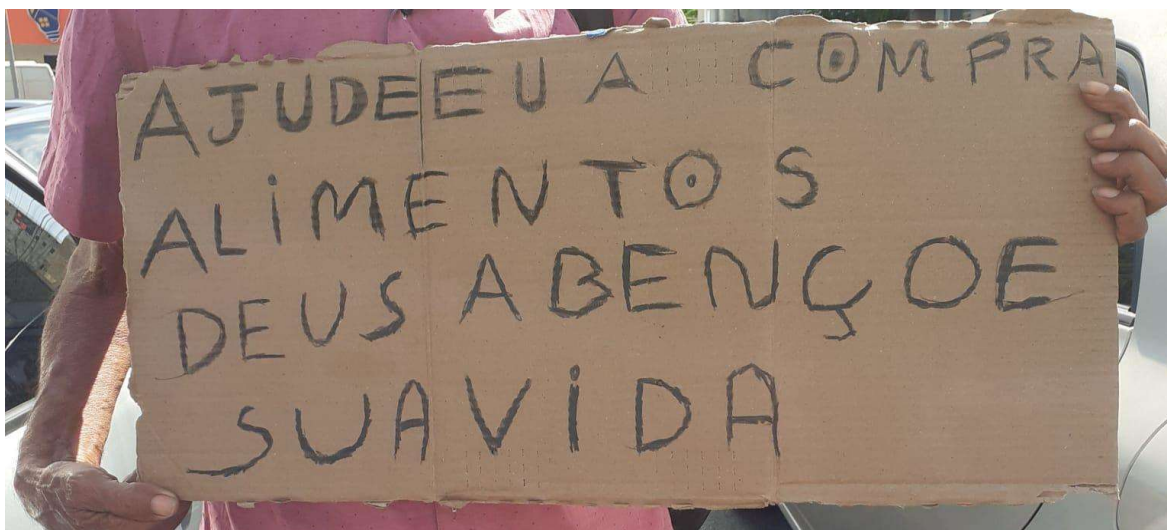 AJUDEEU A COMPRA
ALiMENTOS
DEUS ABENÇOE
SUAViDA